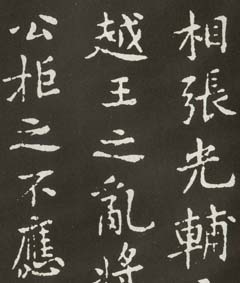 相張光輔
越王之亂將
公拒之不應